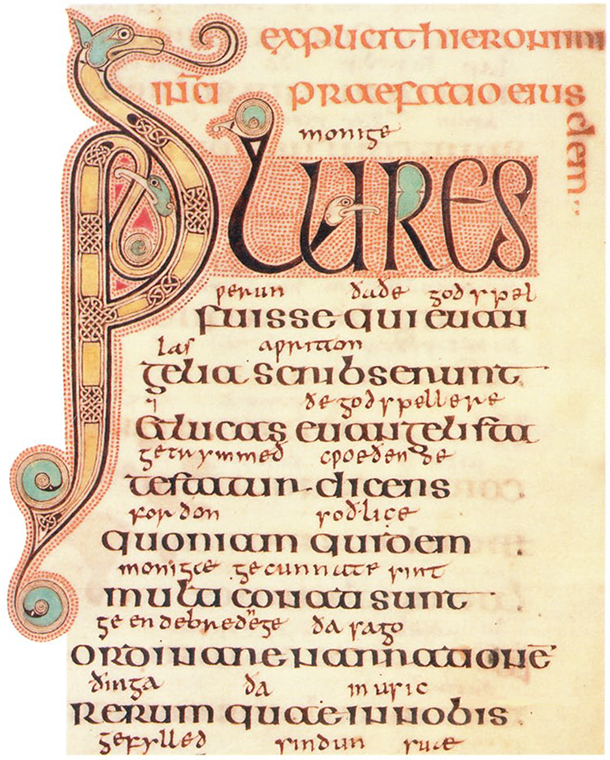 explicit hieronimi
praefatio eius
dem
monige
PLURES
ƿerun ðaðe godspel
fuisse qui euan
las aƿritton
gelia scribserunt
⁊ ðe godspellere
& lucas euangelista
getrymmed cƿoeðende
testatur dicens
forðon soðlice
quoniam quidem
monigæ gecunnate sint
multi conati sunt
ge endebredege ða sago
ordinare narrationē
ðinga ða in usic
rerum quae in nobis
gefylled sindun suæ